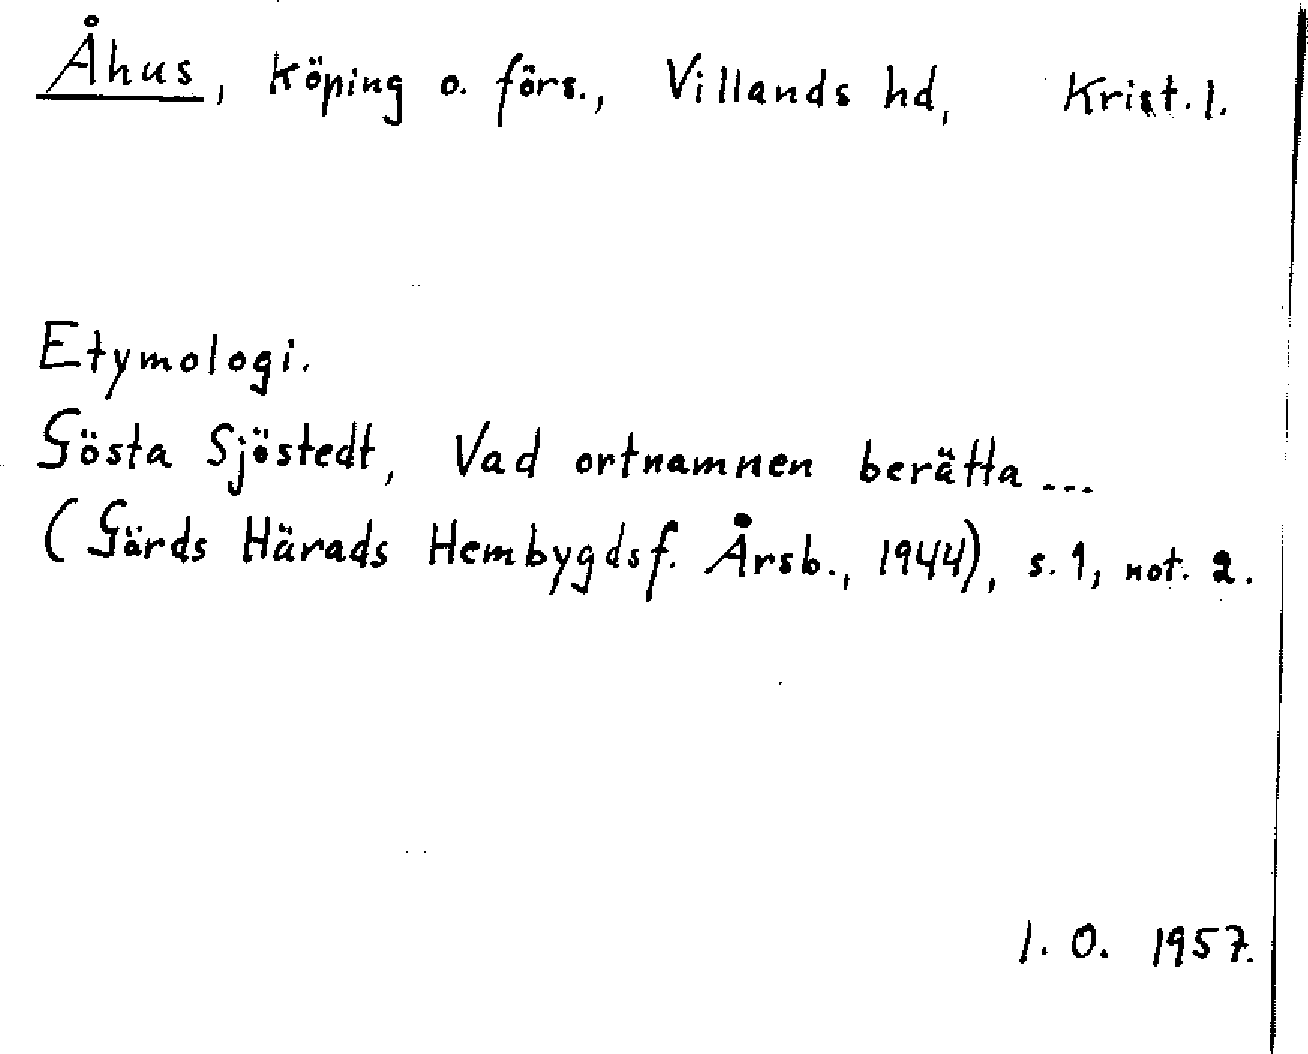 Åhus, köping o. förs., Villands hd, Krist. l.
Etymologi.
Gösta Sjöstedt, Vad ortnamnen berätta ...
(Gärds Härads Hembygdsf. Årsb., 1944), s. 1, not. 2.
I. O. 1957.